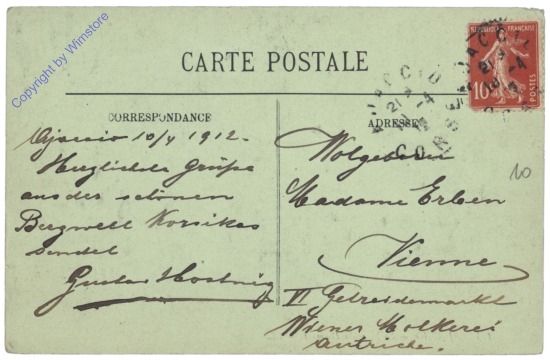 Copyright by Wimstore
CARTE POSTALE
REPUBLIQUE FRANÇAISE
10
POSTES
AJACCIO
21
-4
CORSE
CORRESPONDANCE
ADRESSE
Ajaccio 10/4 1912.
Herzlichste Grüße
aus der schönen
Bergwelt Korsikas
sendet
Gustav
Wolgeboren
Madame Erben
Vienne
VI Getreidemarkt
Wiener Molkerei
Autriche.
10